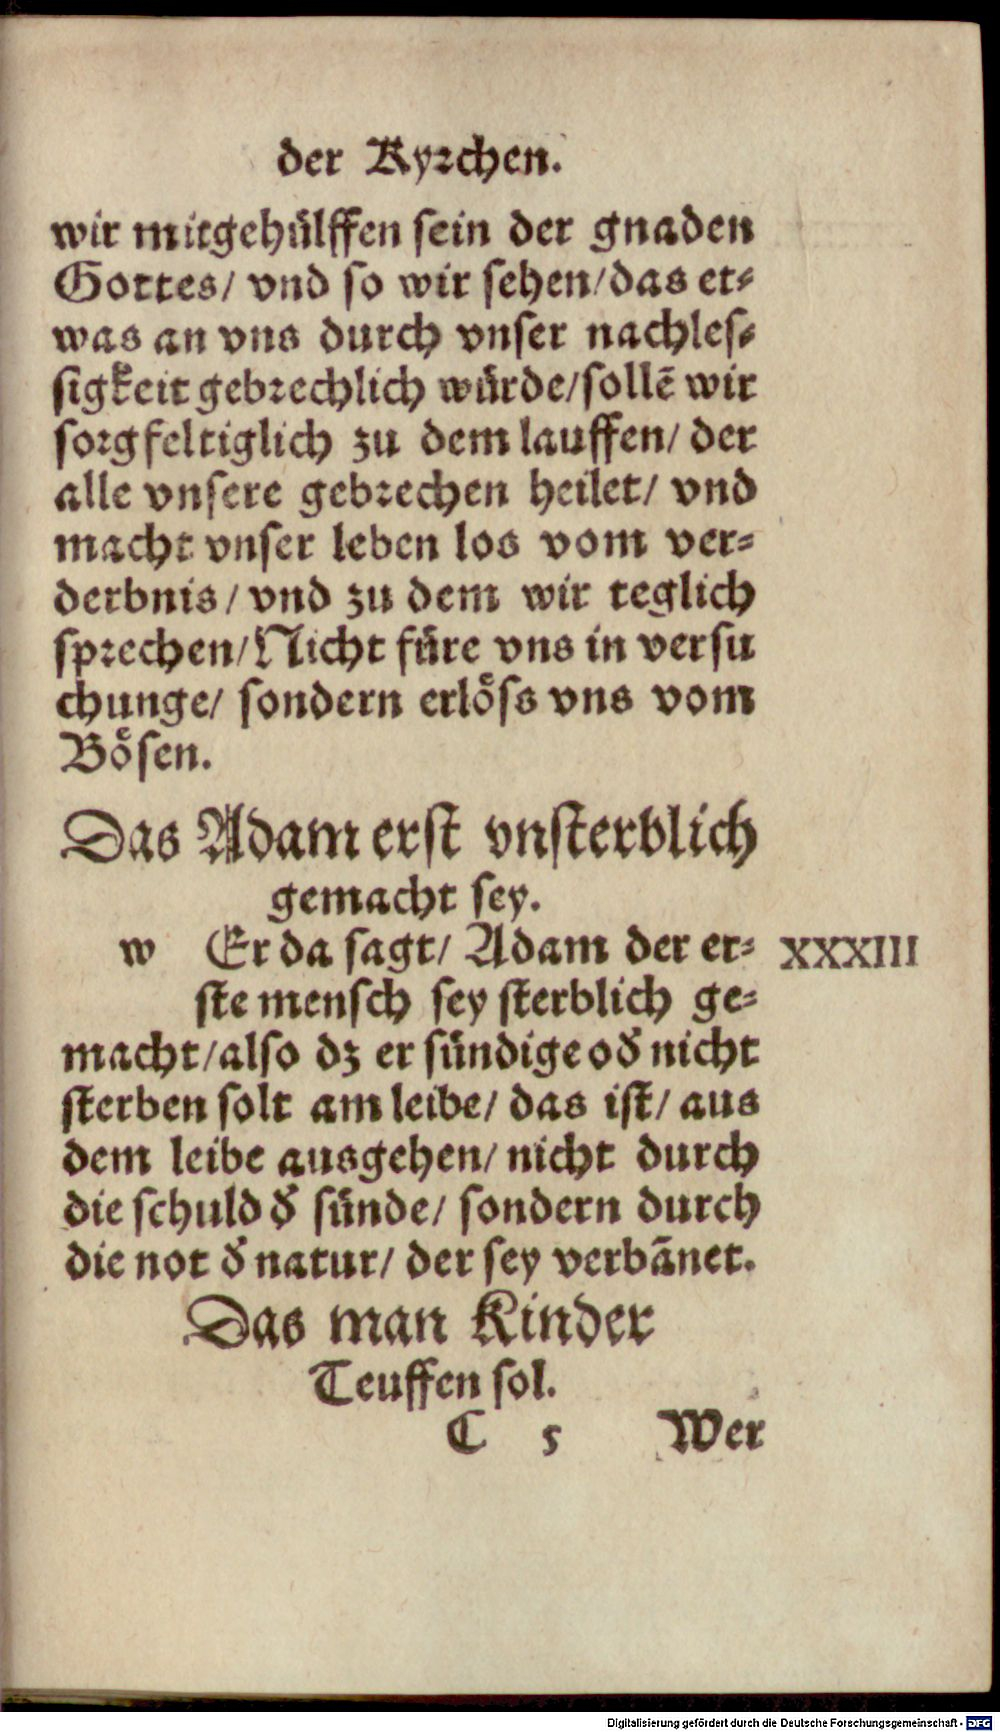 der Kyrchen.
wir mitgehülffen sein der gnaden
Gottes/ vnd so wir sehen/das et⸗
was an vns durch vnser nachles⸗
sigkeit gebrechlich würde/sollē wir
sorgfeltiglich zu dem lauffen/ der
alle vnsere gebrechen heilet/ vnd
macht vnser leben los vom ver⸗
derbnis/ vnd zu dem wir teglich
sprechen/Nicht füre vns in versu
chunge/ sondern erlöss vns vom
Bösen.
Das Adam erst vnsterblich
gemacht sey.
w Er da sagt/ Adam der er⸗ XXXIII
ste mensch sey sterblich ge⸗
macht/also dz er sündige od̕ nicht
sterben solt am leibe/ das ist/ aus
dem leibe ausgehen/ nicht durch
die schuld d̕ sünde/ sondern durch
die not d̕ natur/ der sey verbānet.
Das man Kinder
Teuffen sol.
C 5 Wer
Digitalisierung gefördert durch die Deutsche Forschungsgemeinschaft - DFG